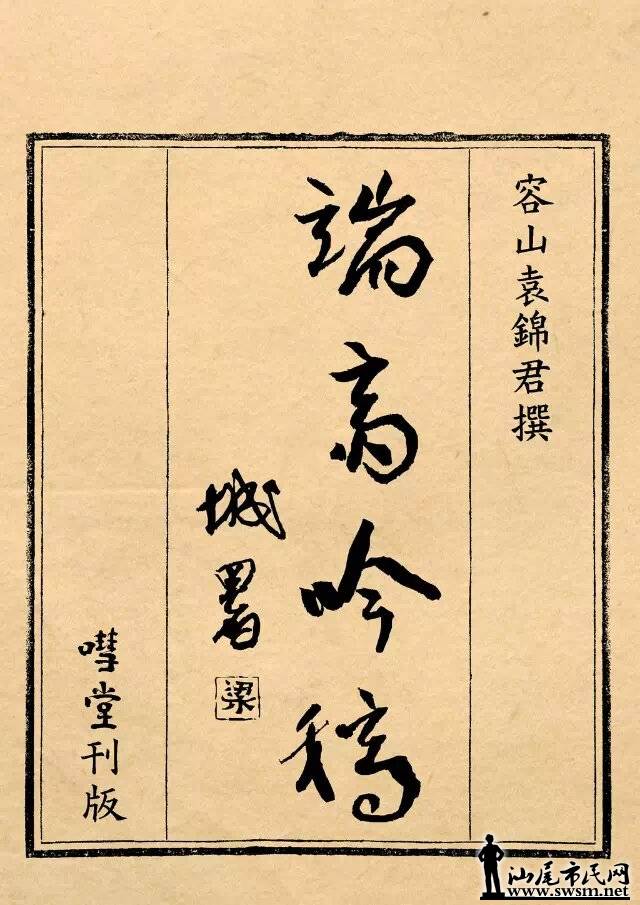 容山袁錦君撰
端齋吟稿
城署
梁
嘒堂刊版
汕尾市民网
www.swsm.net